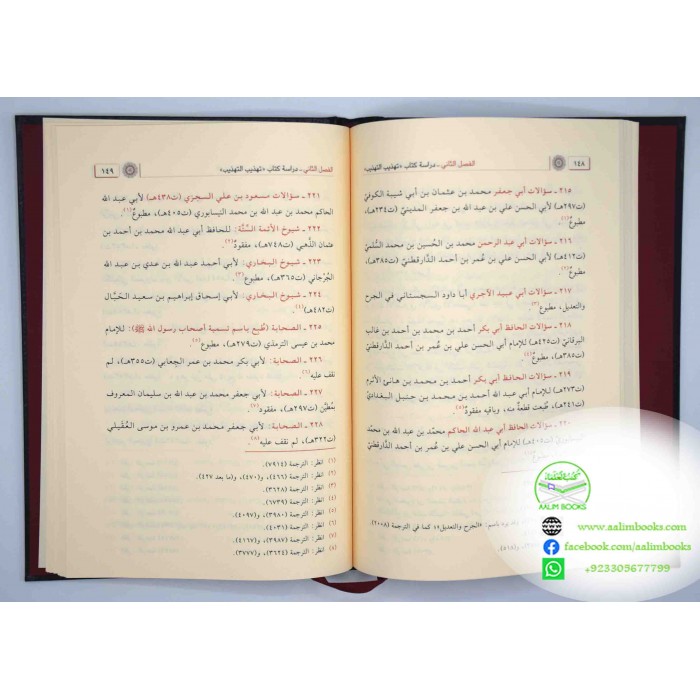 ١٤٨
الفصل الثاني ـ دراسة كتاب «تهذيب التهذيب»
٢١٥ ـ سؤالات أبي جعفر محمد بن عثمان بن أبي شيبة الكوفيّ
(ت٢٩٧هـ) لأبي الحسن علي بن عبد الله بن جعفر المدينيّ (ت٢٣٤هـ)،
مطبوعٌ(١).
٢١٦ ـ سؤالات أبي عبد الرحمن محمد بن الحُسين بن محمد السُّلميّ
(ت٤١٢هـ) لأبي الحسن علي بن عُمر بن أحمد الدّارقطنيّ (ت٣٨٥هـ)،
مطبوعٌ(٢).
٢١٧ ـ سؤالات أبي عبيد الآجري أبا داود السجستاني في الجرح
والتعديل، مطبوع(٣).
٢١٨ ـ سؤالات الحافظ أبي بكر أحمد بن محمد بن أحمد بن غالب
البرقانيّ (ت٤٢٥هـ) للإمام أبي الحسن علي بن عُمر بن أحمد الدّارقطنيّ
(ت٣٨٥هـ)، مطبوعٌ(٤).
٢١٩ ـ سؤالات الحافظ أبي بكر أحمد بن محمد بن هانئ الأثرم
(ت٢٧٣هـ) للإمام أبي عبد الله أحمد بن محمد بن حنبل البغداديّ
(ت٢٤١هـ)، طُبعت قطعةٌ منه، وباقيه مفقودٌ(٥).
٢٢٠ ـ سؤالات الحافظ أبي عبد الله الحاكم محمّد بن عبد الله
(ت٤٠٥هـ) للإمام أبي الحسن علي بن عُمر بن أحمد الدّارقطنيّ
باسم: «الجرح والتعديل» كما في الترجمة (٢٠٠٨)
١٤٩
الفصل الثاني ـ دراسة كتاب «تهذيب التهذيب»
٢٢١ ـ سؤالات مسعود بن علي السجزي (ت٤٣٨هـ) لأبي عبد الله
الحاكم محمد بن عبد الله بن محمد النيسابوري (ت٤٠٥هـ)، مطبوعٌ(١).
٢٢٢ ـ شيوخ الأئمة السُّنَّة: للحافظ أبي عبد الله محمد بن أحمد بن
عثمان الذّهبي (ت٧٤٨هـ)، مفقودٌ(٢).
٢٢٣ ـ شيوخ البخاري: لأبي أحمد عبد الله بن عدي بن عبد الله
الجُرجاني (ت٣٦٥هـ)، مطبوع(٣).
٢٢٤ ـ شيوخ البخاري: لأبي إسحاق إبراهيم بن سعيد الحَبَّال
(ت٤٨٢هـ)(٤).
٢٢٥ ـ الصحابة (طُبع باسم تسمية أصحاب رسول الله ﷺ): للإمام
محمد بن عيسى الترمذي (ت٢٧٩هـ)، مطبوع(٥).
٢٢٦ ـ الصحابة: لأبي بكر محمد بن عمر الجعابي (ت٣٥٥هـ)، لم
نقف عليه(٦).
٢٢٧ ـ الصحابة: لأبي جعفر محمد بن عبد الله بن سليمان المعروف
بمُطيَّن (ت٢٩٧هـ)، مفقود(٧).
٢٢٨ ـ الصحابة: لأبي جعفر محمد بن عمرو بن موسى العُقيلي
(ت٣٢٢هـ)، لم نقف عليه(٨).
(١) انظر: الترجمة (٧٩١٤).
(٢) انظر: الترجمة (٤٦٦)، و(٤٧٠)، و(ما بعد ٤٢٧).
(٣) انظر: الترجمة (٣٦٢٨).
(٤) انظر: الترجمة (٦٧٣٩).
(٥) انظر: الترجمة (٣٩٨٠)، و(٤٠٩٧).
(٦) انظر: الترجمة (٤٠٣١).
(٧) انظر: الترجمة (٣٩٨٧)، و(٤١٦٧).
(٨) انظر: الترجمة (٣٦٢٤)، و(٣٧٧٧).
AALIM BOOKS
www.aalimbooks.com
facebook.com/aalimbooks
+923305677799